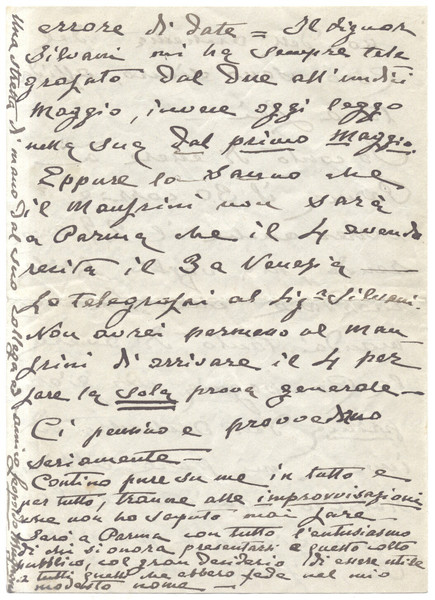 errore di date = Il Signor
Silvani mi ha sempre tele
grafato dal due all'undici
Maggio, invece oggi leggo
nella sua dal primo Maggio.
Eppure lo sanno che
il Manfrini non sarà
a Parma che il 4 avendo
recita il 3 a Venezia —
Lo telegrafai al Sigr Silvani.
Non avrei permesso al Man
frini di arrivare il 4 per
fare la sola prova generale —
Ci pensino e provvedano
seriamente —
Contino pure su me in tutto e
per tutto, tranne alle improvvisazioni
che non ho saputo mai fare
Sarò a Parma con tutto l'entusiasmo
di chi si onora presentarsi a questo colto
pubblico, col gran desiderio di essere utile
a tutti quelli che ebbero fede nel mio
modesto nome —
Una stretta di mano dal suo collega ed amico Leopoldo